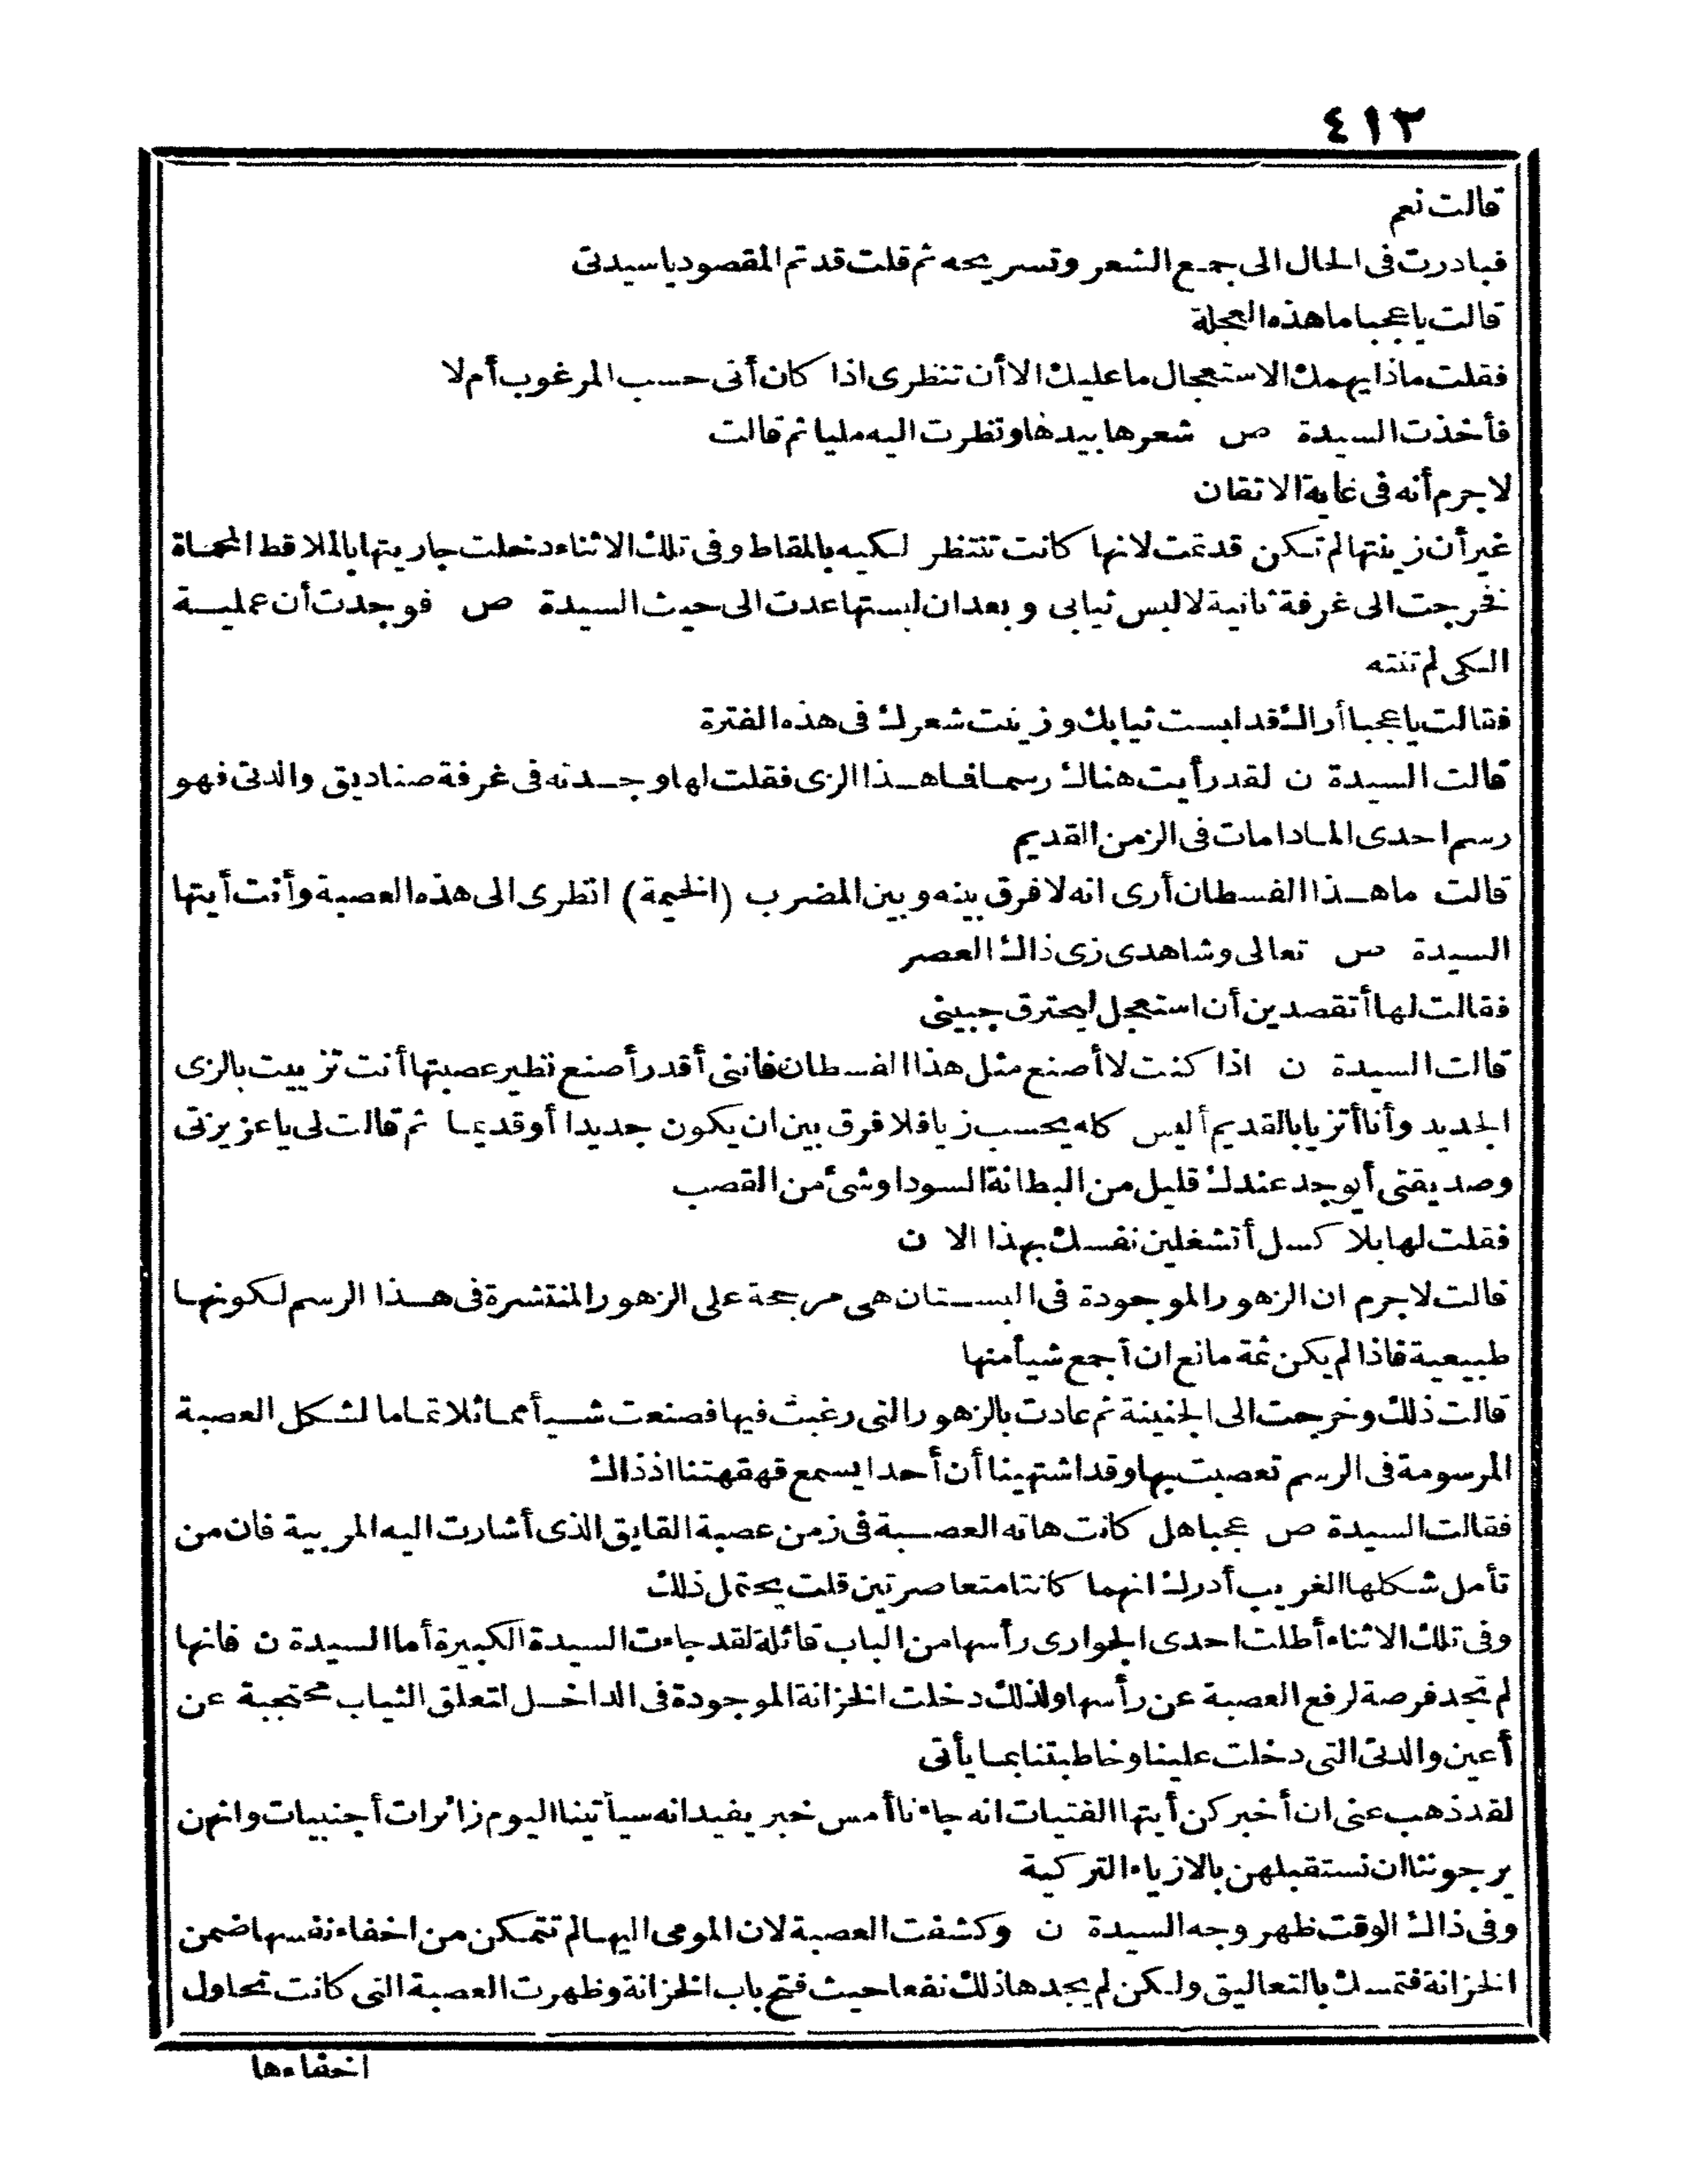 ٤١٢
قالت نعم
فبادرت فى الحال الى جمع الشعر وتسريحه ثم قلت قد تم المقصود ياسيدتى
قالت ياعجبا ما هذه العجلة
فقلت ماذا يهمك الاستعجال ما عليك الا أن تنظرى اذا كان أتى حسب المرغوب أم لا
فأخذت السيدة ص شعرها بيدها ونظرت اليه مليا ثم قالت
لاجرم أنه فى غاية الاتقان
غير أن زينتها لم تكن قد تمت لانها كانت تنتظر لكيه بالمقاط وفى تلك الاثناء دخلت جاريتها بالملاقط المحماة
فخرجت الى غرفة ثانية لالبس ثيابى وبعد ان لبستها عدت الى حيث السيدة ص فوجدت أن عملية
الكى لم تنته
فقالت ياعجبا أراك قد لبست ثيابك وزينت شعرك فى هذه الفترة
قالت السيدة ن لقد رأيت هناك رسما فما هذا الزى فقلت لها وجدته فى غرفة صناديق والدتى فهو
رسم احدى المادامات فى الزمن القديم
قالت ما هذا الفسطان أرى انه لا فرق بينه وبين المضرب (الخيمة) انظرى الى هذه العصبة وأنت أيتها
السيدة ص تعالى وشاهدى زى ذاك العصر
فقالت لها أتقصدين أن استعجل ليحترق جبينى
قالت السيدة ن اذا كنت لا أصنع مثل هذا الفسطان فاننى أقدر أصنع نظير عصبتها أنت تزييت بالزى
الجديد وأنا أتزيا بالقديم أليس كله يحسب زيا فلا فرق بين ان يكون جديدا أو قديما ثم قالت لى ياعزيزتى
وصديقتى أيوجد عندك قليل من البطانة السودا وشئ من القصب
فقلت لها بلا كسل أتشغلين نفسك بهذا الان
قالت لاجرم ان الزهور الموجودة فى البستان هى مرجحة على الزهور المنتشرة فى هذا الرسم لكونها
طبيعية فاذا لم يكن ثمة مانع ان أجمع شيأ منها
قالت ذلك وخرجت الى الجنينة ثم عادت بالزهور التى رغبت فيها فصنعت شيأ مماثلا تماما لشكل العصبة
المرسومة فى الرسم تعصبت بها وقد اشتهينا أن أحدا يسمع قهقهتنا اذ ذاك
فقالت السيدة ص عجبا هل كانت هاته العصبة فى زمن عصبة القايق الذى أشارت اليه المربية فان من
تأمل شكلها الغريب أدرك انهما كانتا متعاصرتين قلت يحتمل ذلك
وفى تلك الاثناء أطلت احدى الجوارى رأسها من الباب قائلة لقد جاءت السيدة الكبيرة أما السيدة ن فانها
لم تجد فرصة لرفع العصبة عن رأسها ولذلك دخلت الخزانة الموجودة فى الداخل لتعلق الثياب محتجبة عن
أعين والدتى التى دخلت علينا وخاطبتنا بما يأتى
لقد ذهب عنى ان أخبركن أيتها الفتيات انه جاءنا أمس خبر يفيد انه سيأتينا اليوم زائرات أجنبيات وانهن
يرجوننا ان نستقبلهن بالازياء التركية
وفى ذاك الوقت ظهر وجه السيدة ن وكشفت العصبة لان المومى اليها لم تتمكن من اخفاء نفسها ضمن
الخزانة فتمسك بالتعاليق ولكن لم يجدها ذلك نفعا حيث فتح باب الخزانة وظهرت العصبة التى كانت تحاول
اخفاءها